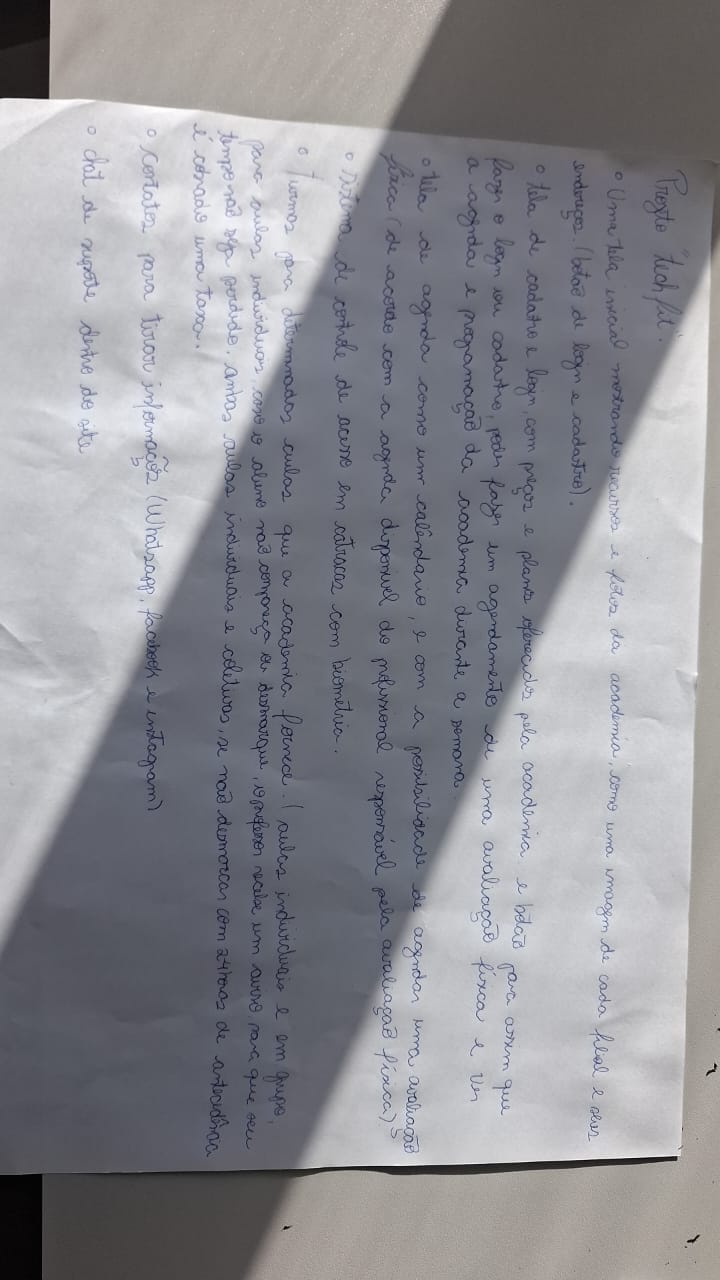 Projeto "tech fit".
o Uma tela inicial mostrando recursos e fotos da academia, como uma imagem de cada filial e seus
endereços. (botão de login e cadastro).
o tela de cadastro e login, com preços e planos oferecidos pela academia e botão para assim que
fazer o login ou cadastro, poder fazer um agendamento de uma avaliação física e ver
a agenda e programação da academia durante a semana.
o tela de agenda como um calendário, e com a possibilidade de agendar uma avaliação
física (de acordo com a agenda disponível do profissional responsável pela avaliação física).
o sistema de controle de acesso em catracas com biometria.
o turmas para determinadas aulas que a academia fornece. (aulas individuais e em grupo,
para aulas individuais, caso o aluno não compareça ou desmarque, o professor recebe um aviso para que seu
tempo não seja perdido, ambas aulas individuais e coletivas, se não desmarcar com 24 horas de antecedência
é cobrado uma taxa.
o contatos para tirar informações (Whatsapp, facebook e instagram)
o chat de suporte dentro do site